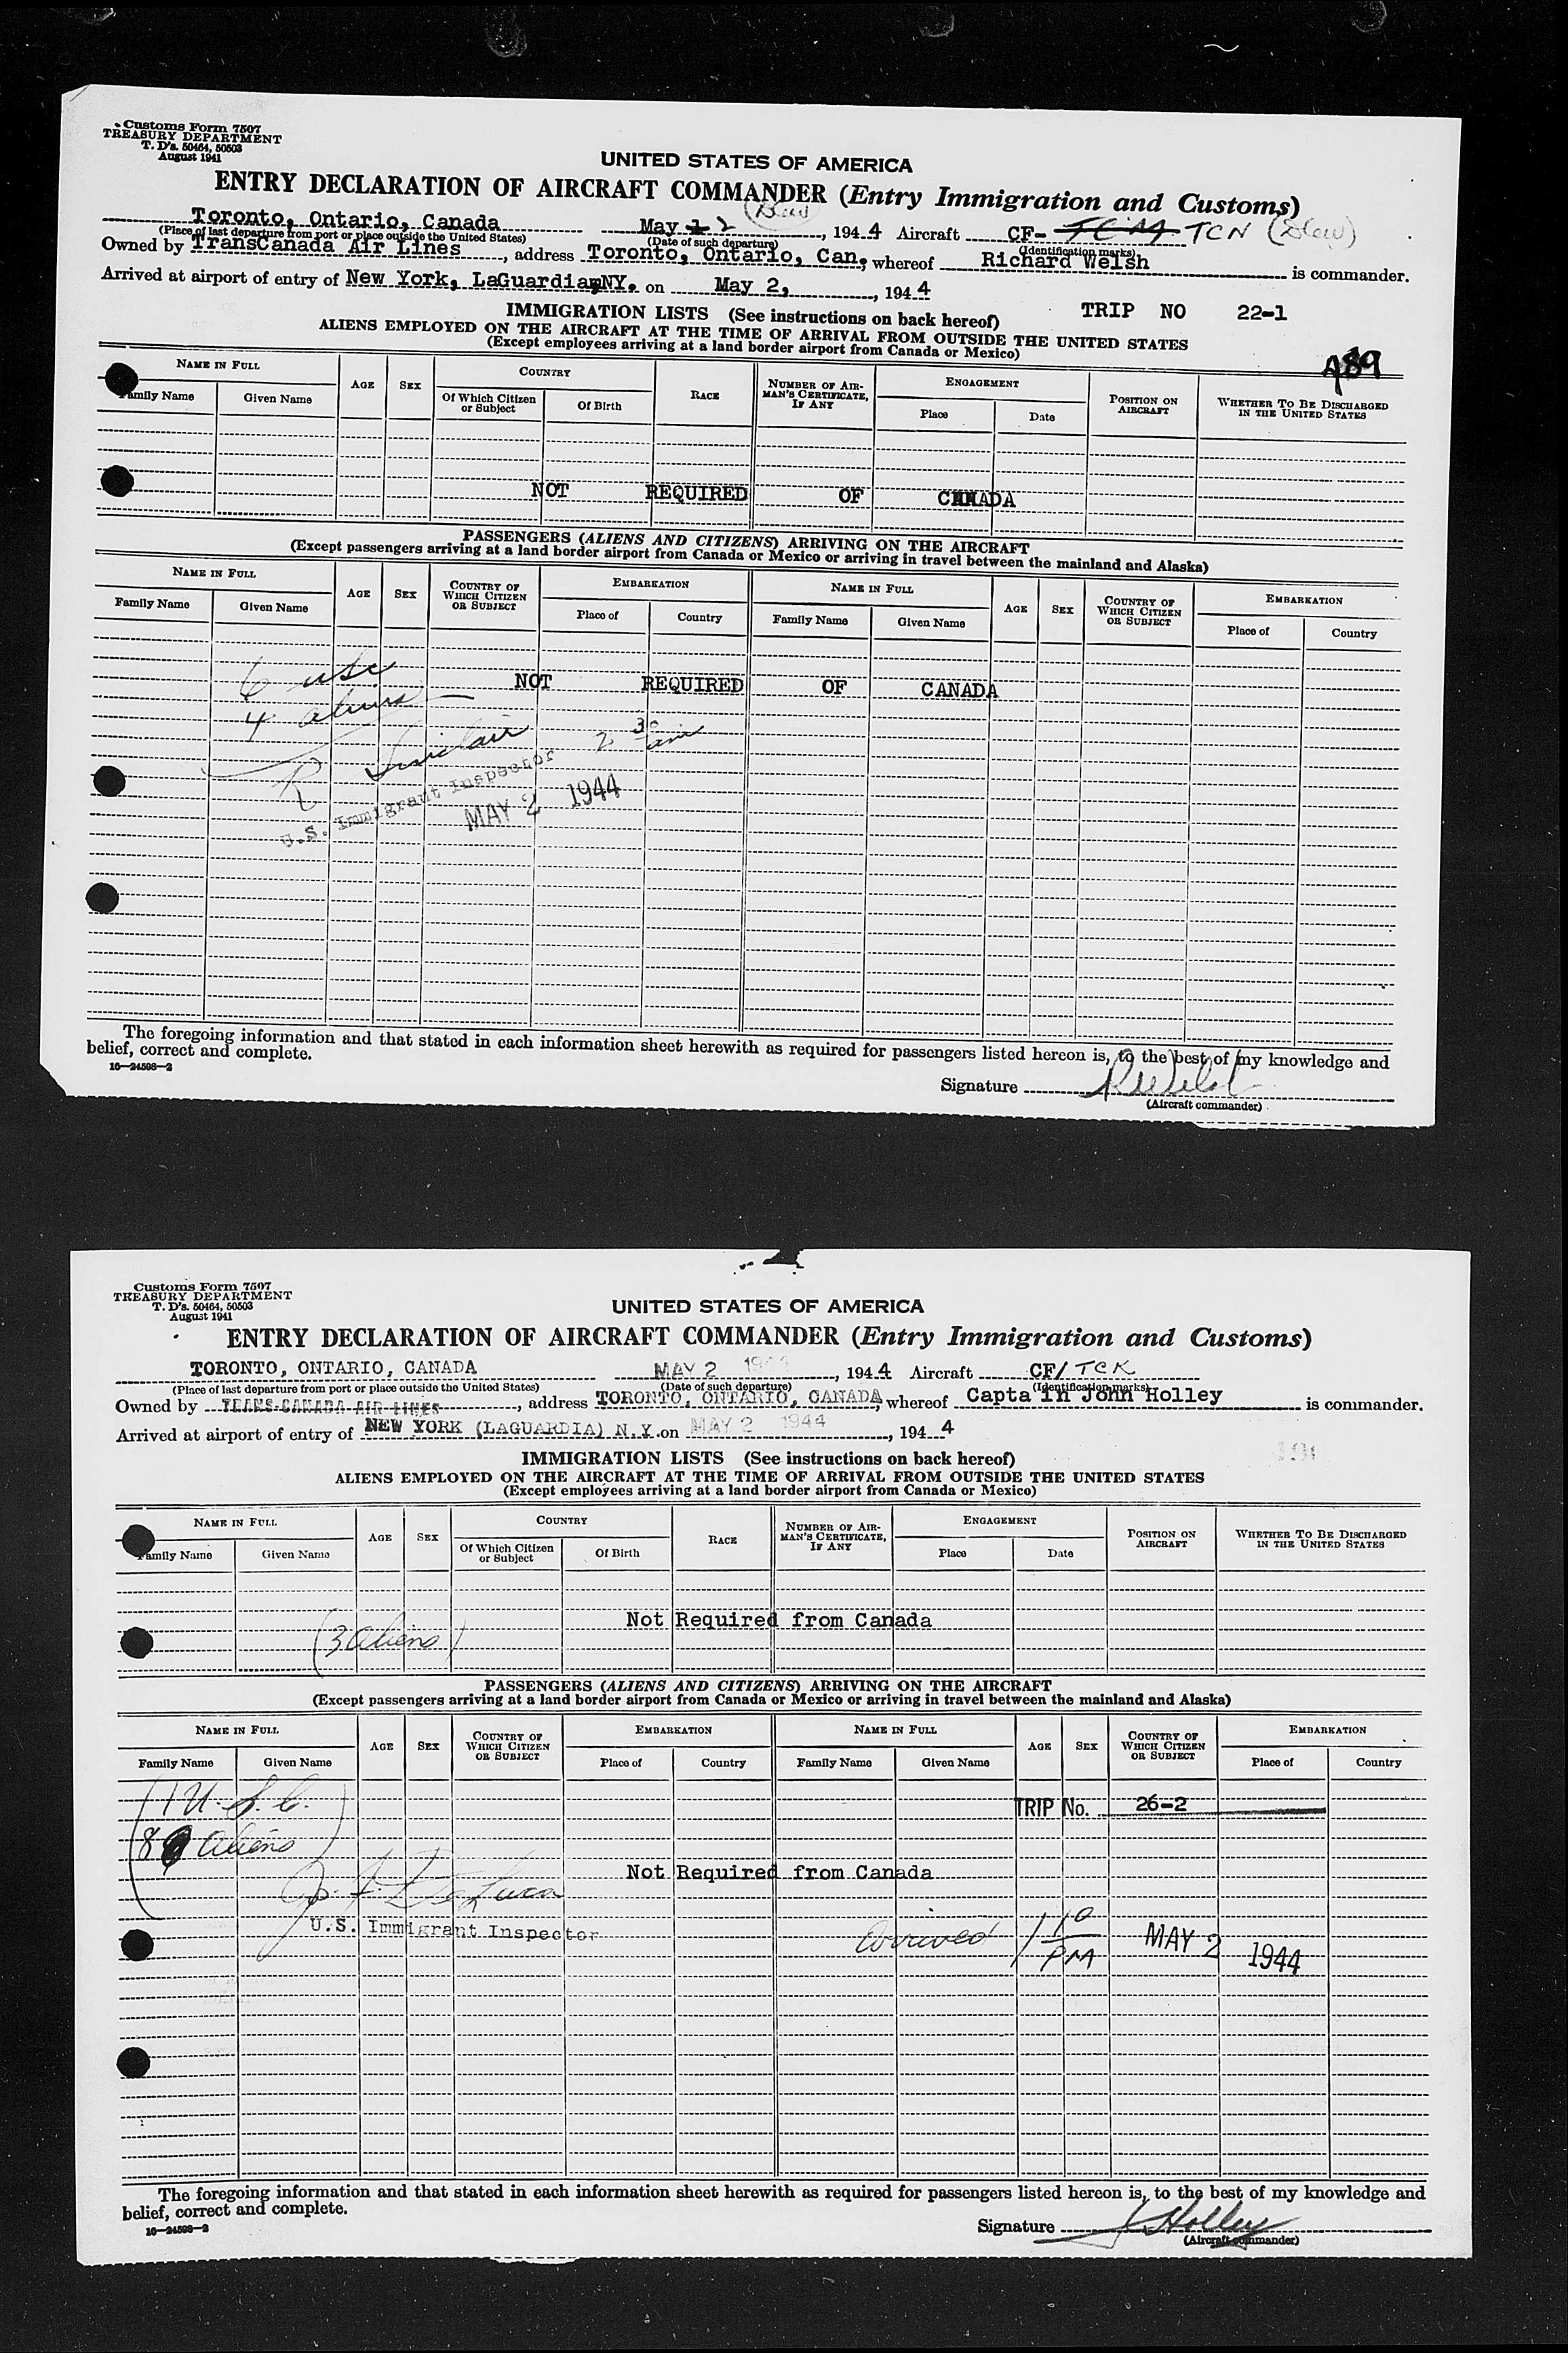 Customs Form 7507
TREASURY DEPARTMENT
T. D's. 50464, 50503
August 1941
UNITED STATES OF AMERICA
ENTRY DECLARATION OF AIRCRAFT COMMANDER (Entry Immigration and Customs)
Toronto, Ontario, Canada May 1 2, 1944 Aircraft CF- TCM TCN
(Place of last departure from port or place outside the United States) (Date of such departure) (Identification marks)
Owned by TransCanada Air Lines, address Toronto, Ontario, Can. whereof Richard Welsh is commander.
Arrived at airport of entry of New York, LaGuardia, NY. on May 2, 1944
TRIP NO 22-1
IMMIGRATION LISTS (See instructions on back hereof)
ALIENS EMPLOYED ON THE AIRCRAFT AT THE TIME OF ARRIVAL FROM OUTSIDE THE UNITED STATES
(Except employees arriving at a land border airport from Canada or Mexico)
489
NAME IN FULL AGE SEX COUNTRY RACE NUMBER OF AIRMAN'S CERTIFICATE, IF ANY ENGAGEMENT POSITION ON AIRCRAFT WHETHER TO BE DISCHARGED IN THE UNITED STATES
Family Name Given Name Of Which Citizen or Subject Of Birth Place Date
NOT REQUIRED OF CANADA
PASSENGERS (ALIENS AND CITIZENS) ARRIVING ON THE AIRCRAFT
(Except passengers arriving at a land border airport from Canada or Mexico or arriving in travel between the mainland and Alaska)
NAME IN FULL AGE SEX COUNTRY OF WHICH CITIZEN OR SUBJECT EMBARKATION NAME IN FULL AGE SEX COUNTRY OF WHICH CITIZEN OR SUBJECT EMBARKATION
Family Name Given Name Place of Country Family Name Given Name Place of Country
6 usc
NOT REQUIRED OF CANADA
4 aliens
R Sinclair 2 30 am
U.S. Immigrant Inspector
MAY 2 1944
The foregoing information and that stated in each information sheet herewith as required for passengers listed hereon is, to the best of my knowledge and
belief, correct and complete.
16—24598—2
Signature R Welsh
(Aircraft commander)
Customs Form 7507
TREASURY DEPARTMENT
T. D's. 50464, 50503
August 1941
UNITED STATES OF AMERICA
ENTRY DECLARATION OF AIRCRAFT COMMANDER (Entry Immigration and Customs)
TORONTO, ONTARIO, CANADA MAY 2 1944, 1944 Aircraft CF/ TCK
(Place of last departure from port or place outside the United States) (Date of such departure) (Identification marks)
Owned by TRANS-CANADA AIR LINES, address TORONTO, ONTARIO, CANADA, whereof Captain John Holley is commander.
Arrived at airport of entry of NEW YORK (LAGUARDIA) N.Y. on MAY 2 1944, 1944
IMMIGRATION LISTS (See instructions on back hereof)
ALIENS EMPLOYED ON THE AIRCRAFT AT THE TIME OF ARRIVAL FROM OUTSIDE THE UNITED STATES
(Except employees arriving at a land border airport from Canada or Mexico)
NAME IN FULL AGE SEX COUNTRY RACE NUMBER OF AIRMAN'S CERTIFICATE, IF ANY ENGAGEMENT POSITION ON AIRCRAFT WHETHER TO BE DISCHARGED IN THE UNITED STATES
Family Name Given Name Of Which Citizen or Subject Of Birth Place Date
Not Required from Canada
(3 aliens)
PASSENGERS (ALIENS AND CITIZENS) ARRIVING ON THE AIRCRAFT
(Except passengers arriving at a land border airport from Canada or Mexico or arriving in travel between the mainland and Alaska)
NAME IN FULL AGE SEX COUNTRY OF WHICH CITIZEN OR SUBJECT EMBARKATION NAME IN FULL AGE SEX COUNTRY OF WHICH CITIZEN OR SUBJECT EMBARKATION
Family Name Given Name Place of Country Family Name Given Name Place of Country
U.S.C.
TRIP No. 26-2
8 aliens
Not Required from Canada
De Luca
U.S. Immigrant Inspector
arrived 1 10 PM MAY 2 1944
The foregoing information and that stated in each information sheet herewith as required for passengers listed hereon is, to the best of my knowledge and
belief, correct and complete.
16—24598—2
Signature J Holley
(Aircraft commander)